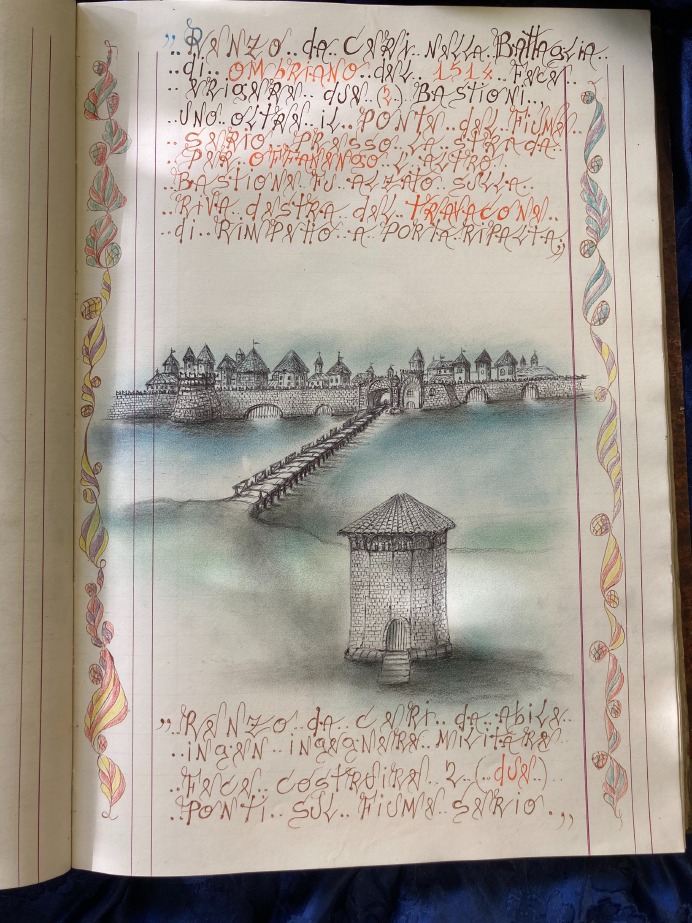 „Renzo.. da Ceri nella Battaglia..
..di.. OMbRIANO.. del.. 1514.. Fece..
..erigere.. due 2) BASTIONI..,
UNO OLTRE IL.. PONTE.. del FIUME..
..SERIO.. PRESSO LA STRADA..
..PER OFFANENGO L'ALTRO..
..BASTIONE FU ALZATO SULLA..
..RIVA dESTRA del TRAVACONE..
..di.. RIMPETTO A PORTA RIPALTA,,
„RENZO.. da.. CERI.. da AbILE..
..INgEN.. INgEgNERE MILITARE
..FECE COSTRUIRE 2 (..dUE..)
..PONTI.. SUL FIUME SERIO..„